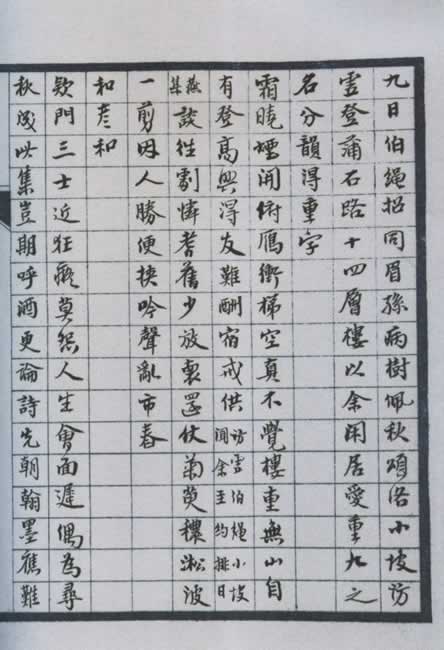 九日伯繩招同眉孫病樹佩秋頌洛小坡訪
雲登蒲石路十四層樓以余閑居愛重九之
名分韻得重字
霜曉煙開俯鴈衝梯空真不覺樓重無山自
有登高興得友難酬宿戒供訪雲伯繩小坡聞余至約排日
燕集談往劇憐耆舊少放還仗菊萸穠淞波
一剪因人勝便挾吟聲亂市舂
和彥和
欵門三士近狂癡莫怨人生會面遲偶為尋
秋成此集豈期呼酒更論詩先朝翰墨應難